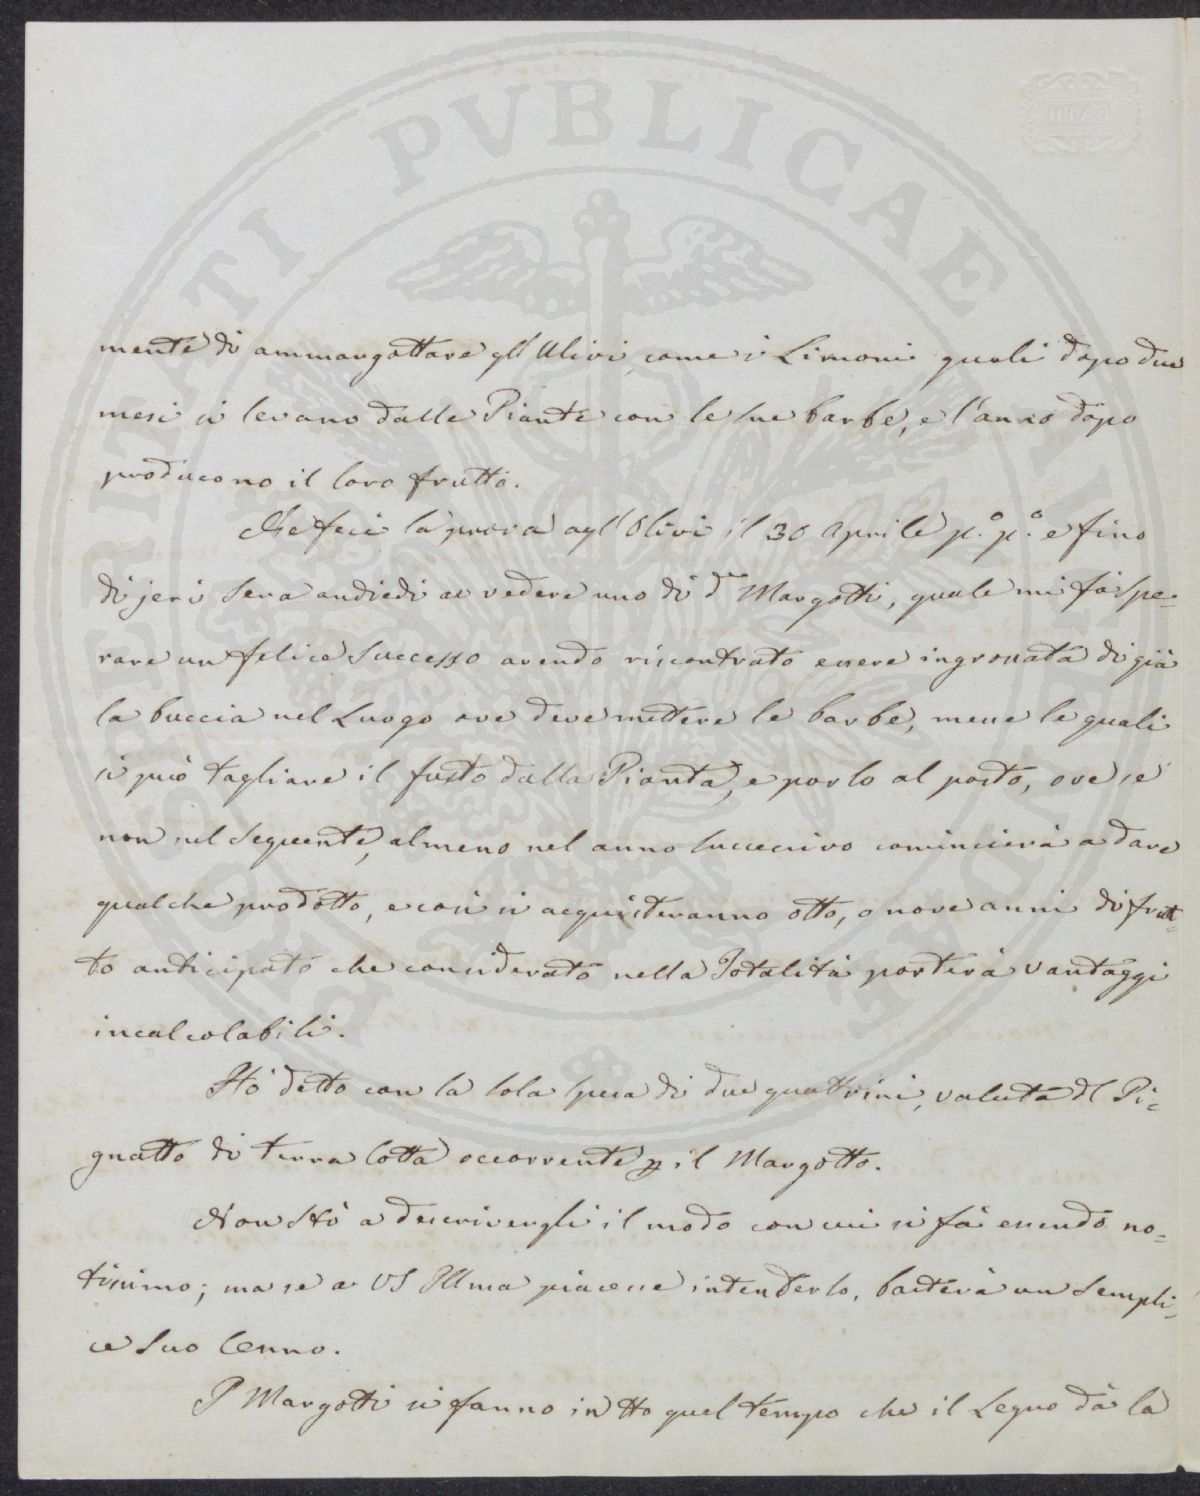 PROSPERITATI PVBLICAE AVGENDAE
mente di ammargottare gl'Ulivi, come i Limoni quali dopo due
mesi si levano dalle Piante con le sue barbe, e l'anno dopo
producono il loro frutto.
Ne feci la prova agl'Olivi il 30 Aprile p.° p.° e fino
di jeri sera andiedi a vedere uno di d.i Margotti, quale mi fà spe=
rare un felice successo avendo riscontrato essere ingrossata di già
la buccia nel Luogo ove deve mettere le barbe, messe le quali
si può tagliare il fusto dalla Pianta, e porlo al posto, ove se
non nel seguente, almeno nel anno successivo comincierà a dare
qualche prodotto, e così si acquisteranno otto, o nove anni di frut=
to anticipato che considerato nella Totalità porterà vantaggi
incalcolabili.
Hò detto con la sola spesa di due quattrini, valuta del Pi=
gnatto di terra Cotta occorrente p il Margotto.
Non Stò a descrivergli il modo con cui si fà essendo no=
tissimo; ma se a VS Illma piacesse intenderlo, basterà un Sempli=
ce Suo Cenno.
I Margotti si fanno in tto quel tempo che il Legno dà la